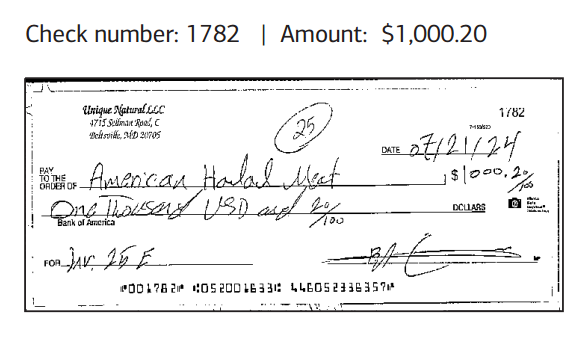 Check number: 1782 | Amount: $1,000.20
Unique Natural LLC
1782
4715 Sellman Road, C
Beltsville, MD 20705
25
DATE 07/21/24
PAY TO THE ORDER OF American Halal Meat $1000.20/100
One Thousand USD and 20/100 DOLLARS
Bank of America
FOR Inv. 25 E
⑈001782⑈ ⑆052001633⑆ 446052336357⑈